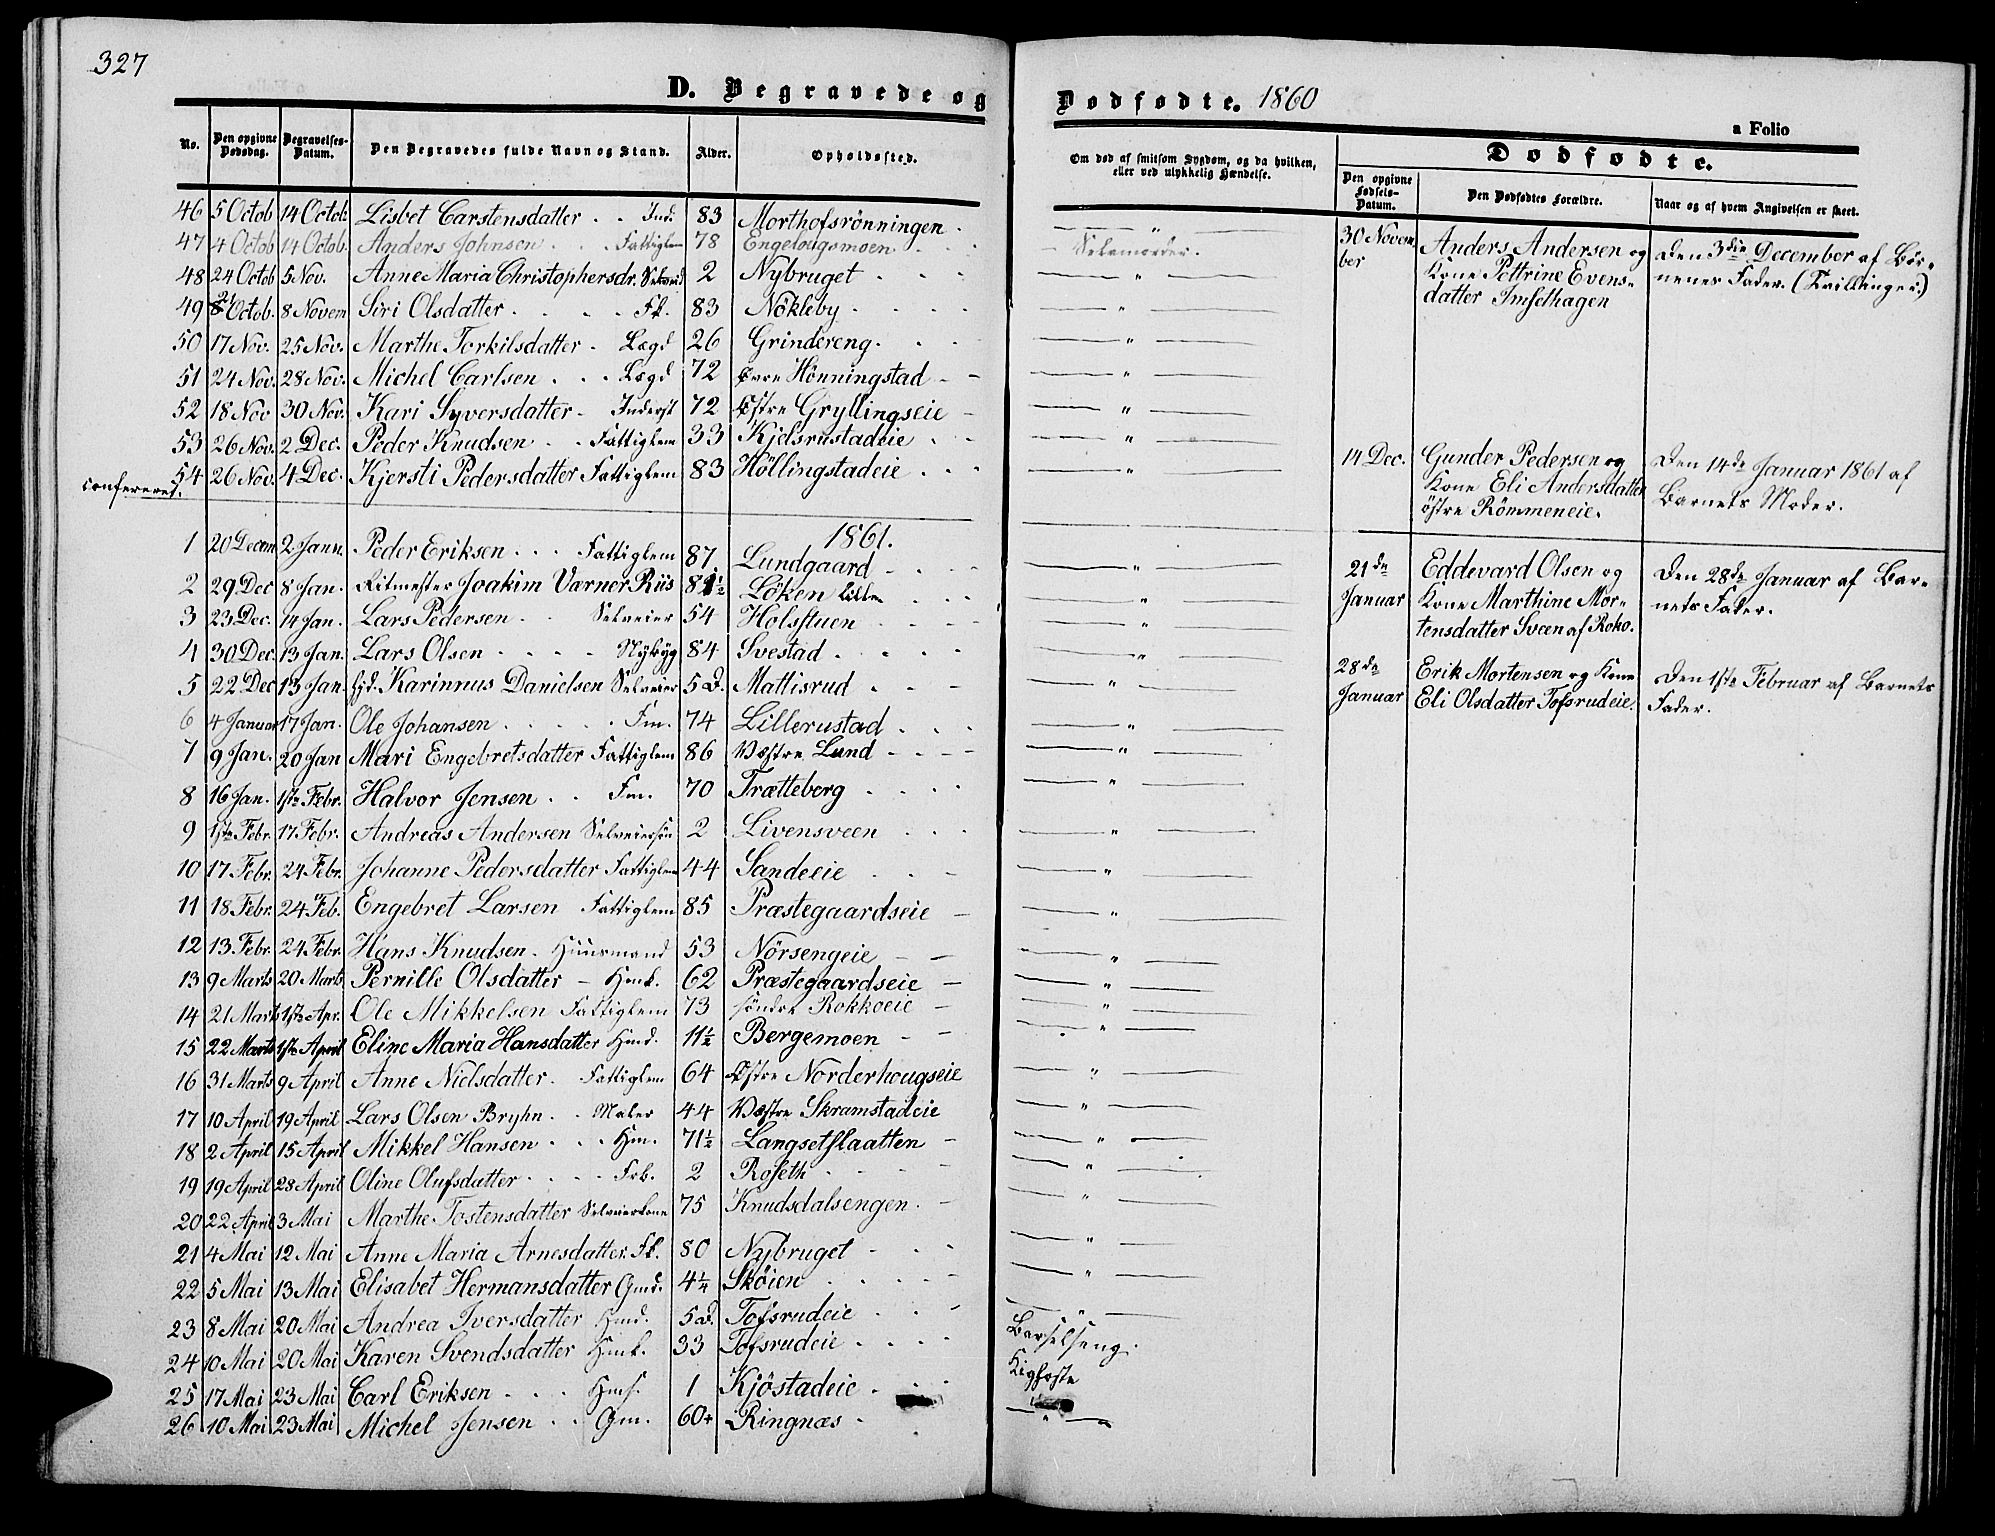 327
D. Begravede og Dødfødte. 1860
a Folio
No. Den opgivne Dødsdag. Begravelses-Datum. Den Begravedes fulde Navn og Stand. Alder. Opholdssted.
Om død af smitsom Sygdom, og da hvilken, eller ved ulykkelig Hændelse.
Dødfødte.
Den opgivne Fødsels-Datum. Den Dødfødtes Forældre. Naar og af hvem Angivelsen er skeet.
46 5 Octob 14 Octob: Lisbet Carstensdatter . . Ind: 83 Morthofsrönningen . — " —
47 4 Octob 14 Octob. Anders Johnsen . . . Fattiglem 78 Engelougsmoen Selvmorder.
48 24 Octob 5 Nov. Anne Maria Christophersdr. 2 Nybruget . . . — " —
49 Octob. 8 Novem Siri Olsdatter . . . . Fk. 83 Nökleby . . . . — " —
50 17 Nov. 25 Nov. Marthe Torkilsdatter . Lægd 26 Grindereng . . . — " —
51 24 Nov. 28 Nov. Michel Carlsen . . . Lægd 72 Øvre Hönningstad — — " —
52 18 Nov 30 Nov. Kari Syversdatter . Inderst 72 Østre Gryllingseie — — " —
53 26 Nov. 2 Dec. Peder Knudsen . . Fattiglem 33 Kjelsrustadeie . . — " —
54 26 Nov. 4 Dec. Kjersti Pedersdatter Fattiglem 83 Höllingstadeie . . . — " —
confereret.
1861.
1 20 Decem 2 Jann. Peder Eriksen . . . Fattiglem 87 Lundgaard — . . . — " —
2 29 Dec 8 Jan. Ritmester Joakim Varner Riis 81½ Löken lille . . . — " —
3 23 Dec. 14 Jan. Lars Pedersen . . Selveier 54 Holsstuen . . . . — " —
4 30 Dec. 13 Jan. Lars Olsen . . . . Nybyg 84 Svestad . . . . — " —
5 22 Dec 13 Jan. hjd. Karinnus Danielsen Selveier 5 D. Mattisrud . . — — " —
6 4 Januar 17 Jan. Ole Johansen . . . . . Fm. 74 Lillerustad . . . — " —
7 9 Jan. 20 Jan Mari Engebretsdatter Fattiglem 86 Væstre Lund — . — — — " —
8 16 Jan. 1ste Febr. Halvor Jensen . . Fm. 70 Trætteberg . . . . — " —
9 1ste Febr. 17 Febr. Andreas Andersen Selveiersön 2 Livensveen . . . — " —
10 17 Febr. 24 Febr. Johanne Pedersdatter Fattiglem 44 Sandeeie . . — — " —
11 18 Febr. 24 Feb. Engebret Larsen Fattiglem 85 Præstegaardseie — — " —
12 13. Febr. 24 Febr. Hans Knudsen . Huusmand 53 Nörsengeie — — — " —
13 9 Marts 20 Marts Pernille Olsdatter — Hmk. 62 Præstegaardseie — — " —
14 21 Marts 1ste Apr. Ole Mikkelsen Fattiglem 73 söndre Rokkoeie — — " —
15 22 Marts 1ste April Eline Maria Hansdatter Hmd. 11½ Bergemoen — — . — " —
16 31 Marts 9 April Anne Nielsdatter . Fattiglem 64 Østre Norderhougseie — " —
17 10 April 19 April Lars Olsen Bryhn . . Maler 44 Væstre Skramstadeie — " —
18 2 April 15 April Mikkel Hansen . . . Hm. 71½ Langsetflaatten — — " —
19 19 April 28 April Oline Olufsdatter . . . . Frb. 2 Roseth . . . — — " —
20 22 April 3 Mai Marthe Tostensdatter Selveierkone 75 Knudsdalsengen . — — " —
21 4 Mai 12 Mai Anne Maria Arnesdatter. Fk. 80 Nybruget — . . — " —
22 5 Mai 13 Mai Elisabet Hermansdatter Gmd. 4¼ Sköien . . . . — — " —
23 8 Mai 20 Mai Andrea Iversdatter Hmd. 5 D. Tofsrudeie . . — — " —
24 10 Mai 20 Mai Karen Svendsdatter Hmk. 33 Tofsrudeie . . . . Barselseng.
25 17 Mai 23 Mai Carl Eriksen . . . Hms. 1 Kjöstadeie . . . . Kighoste
26 10 Mai 23 Mai Michel Jensen . . Gm. 60+ Ringnæs . — " —
30 Novem ber
Anders Andersen og
Kone Pettrine Evens-
datter Imselhagen
Den 3die December af Bør-
nenes Fader. (Tvillinger)
14 Dec.
Gunder Pedersen og
Kone Eli Andersdatter
östre Römmeneie.
Den 14de Januar 1861 af
Barnets Moder.
21de Januar
Eddevard Olsen og
Kone Marthine Mor-
tensdatter Sveen af Roko.
Den 28de Januar af Bar-
nets Fader.
28de Januar
Erik Mortensen og Kone
Eli Olsdatter Tofsrudeie.
Den 1ste Februar af Barnets
Fader.